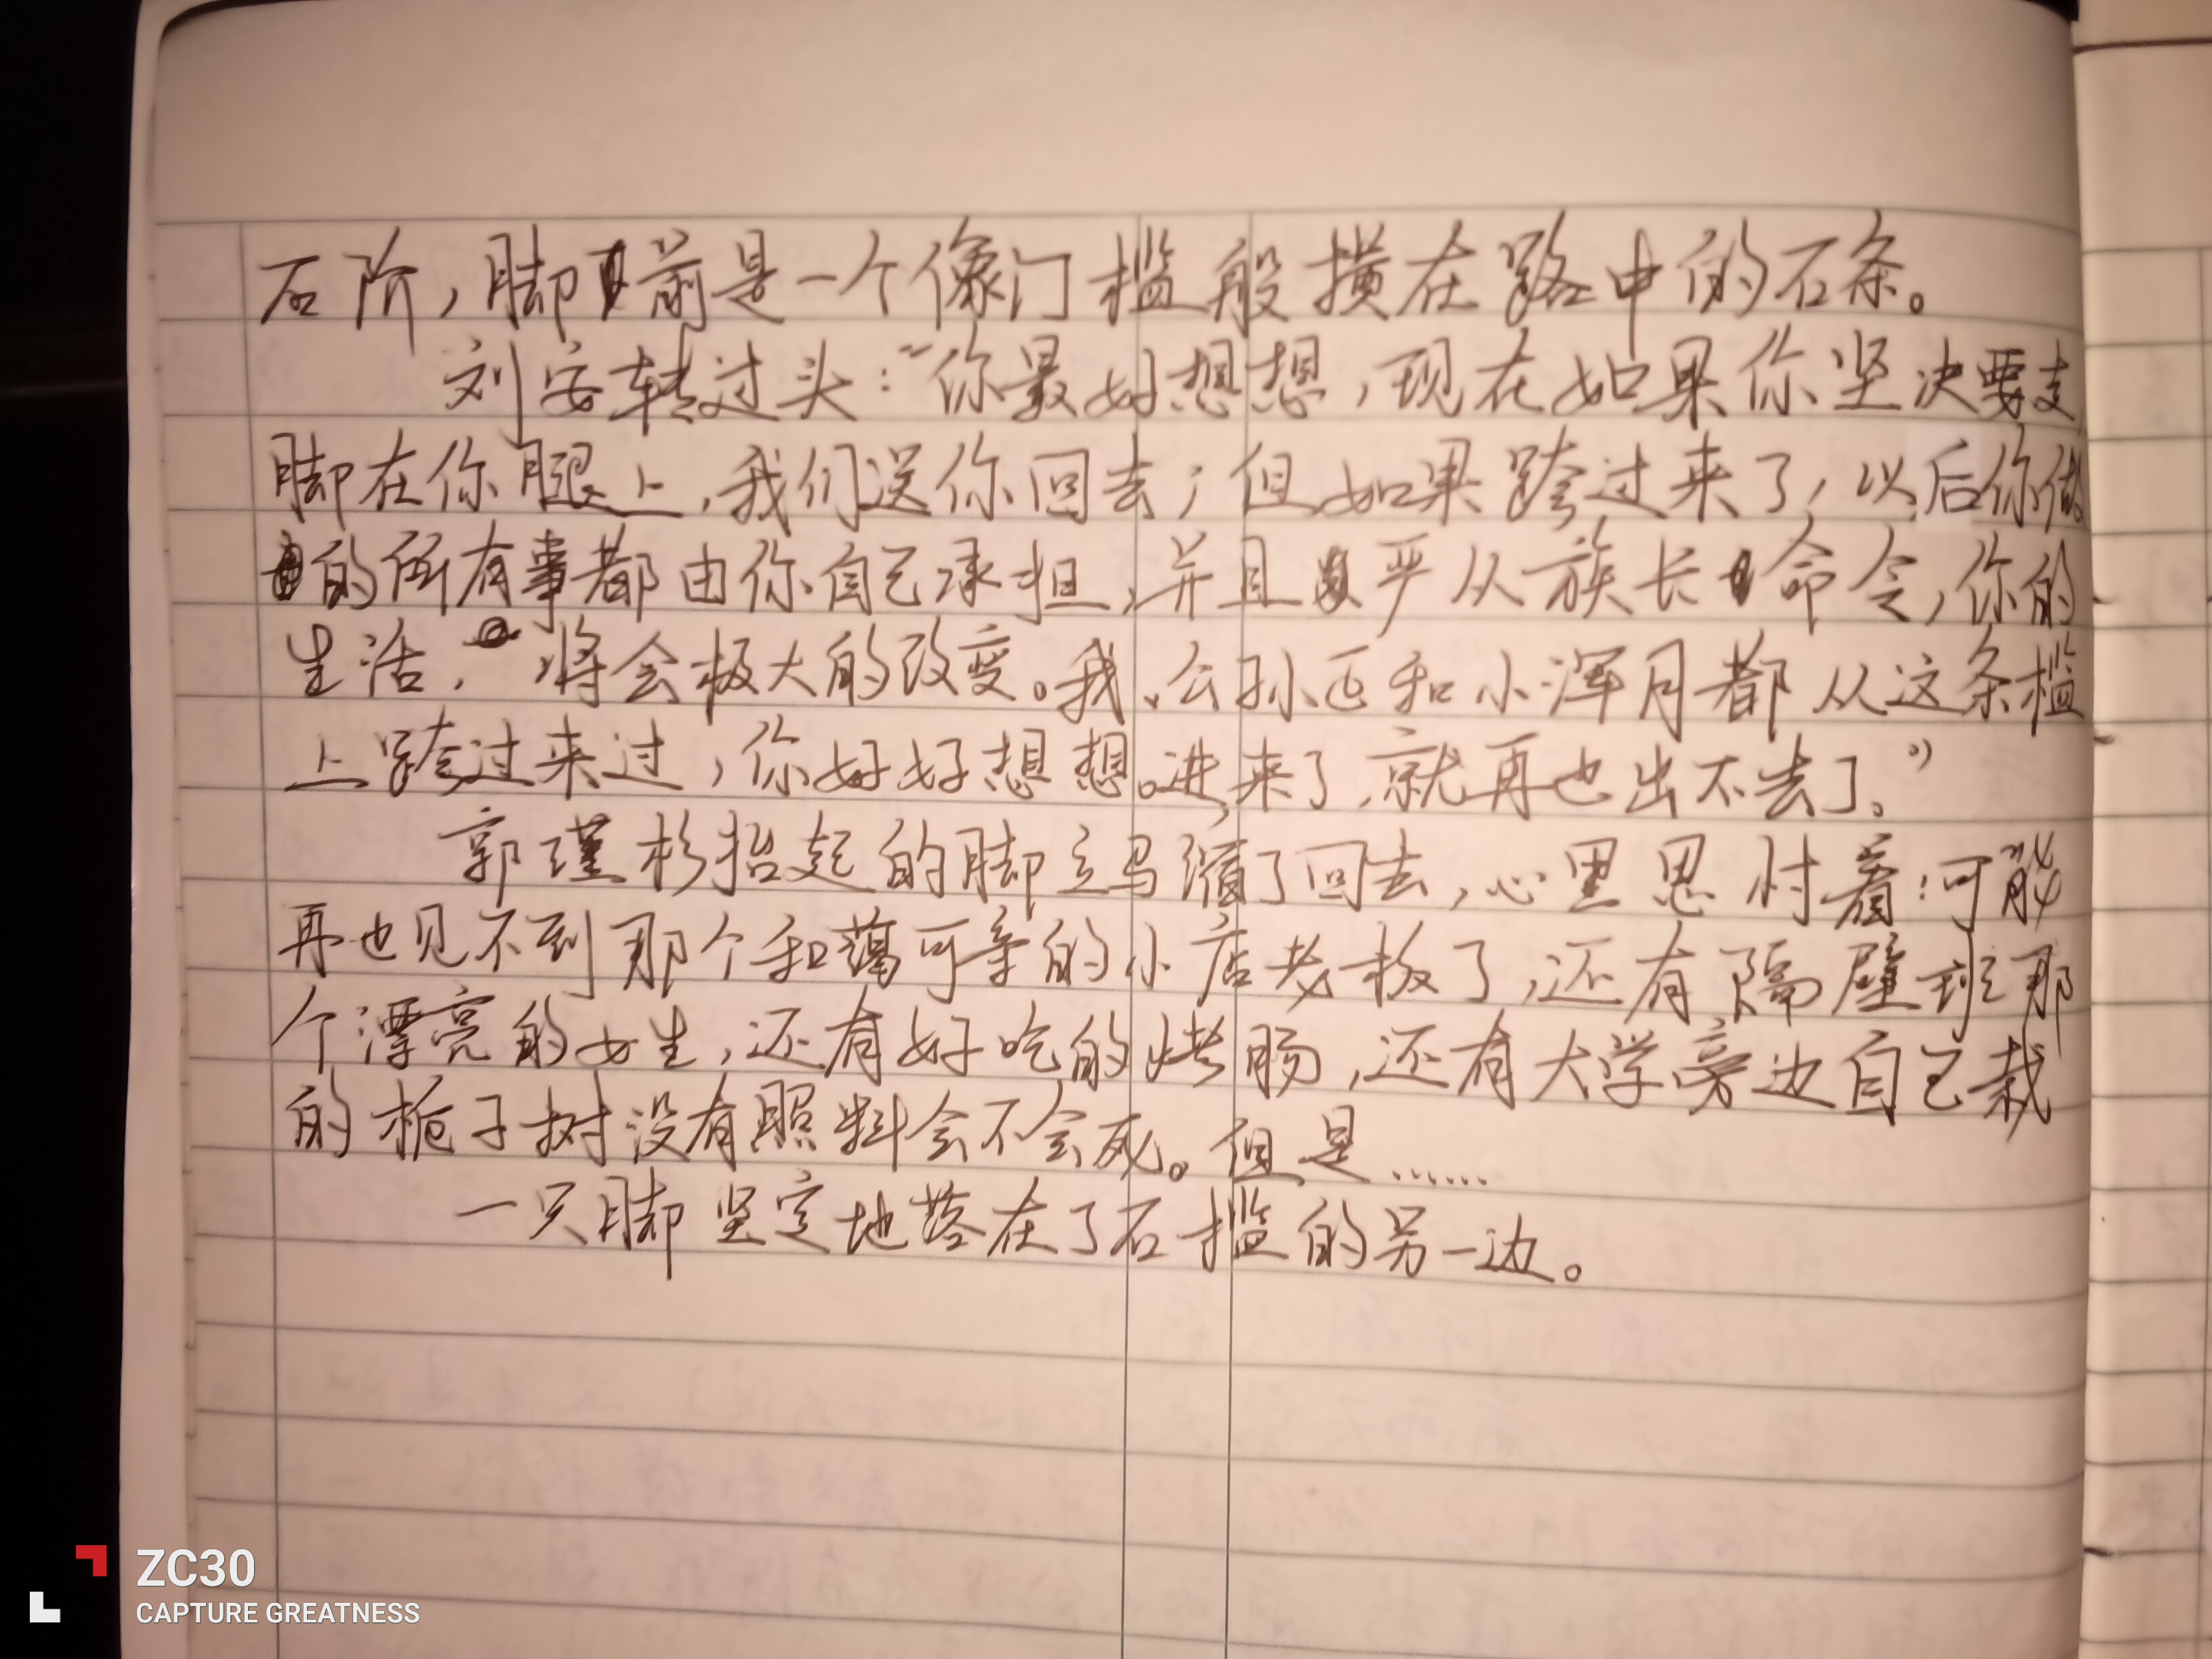 石阶，脚前是一个像门槛般横在路中的石条。
刘安转过头：“你最好想想，现在如果你坚决要走
脚在你腿上，我们送你回去；但如果跨过来了，以后你做
的所有事都由你自己承担，并且严从族长命令，你的
生活，将会极大的改变。我、公孙正和小浑月都从这条槛
上跨过来过，你好好想想。进来了，就再也出不去了。”
郭瑾杉抬起的脚立马缩了回去，心里思忖着：可能
再也见不到那个和蔼可亲的小店老板了，还有隔壁班那
个漂亮的女生，还有好吃的烤肠，还有大学旁边自己栽
的栀子树没有照料会不会死。但是……
一只脚坚定地落在了石槛的另一边。
ZC30
CAPTURE GREATNESS